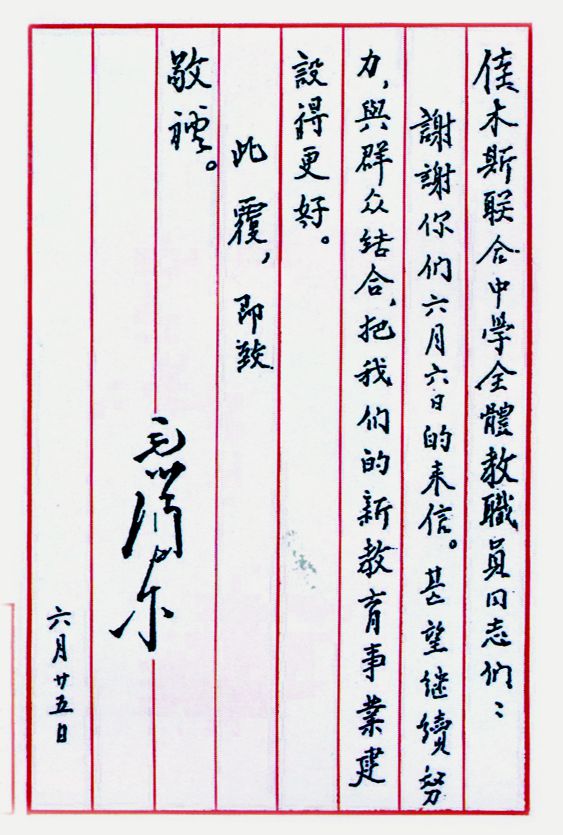 佳木斯联合中學全體教職員同志们：
謝謝你们六月六日的来信。甚望继續努
力，與群众结合，把我们的新教育事業建
設得更好。
此覆，即致
敬禮。
毛泽东
六月廿五日